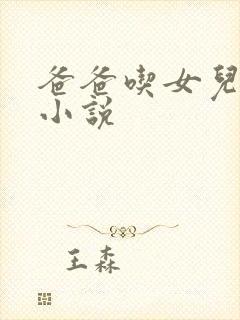 爸爸喫女兒
小說
王森